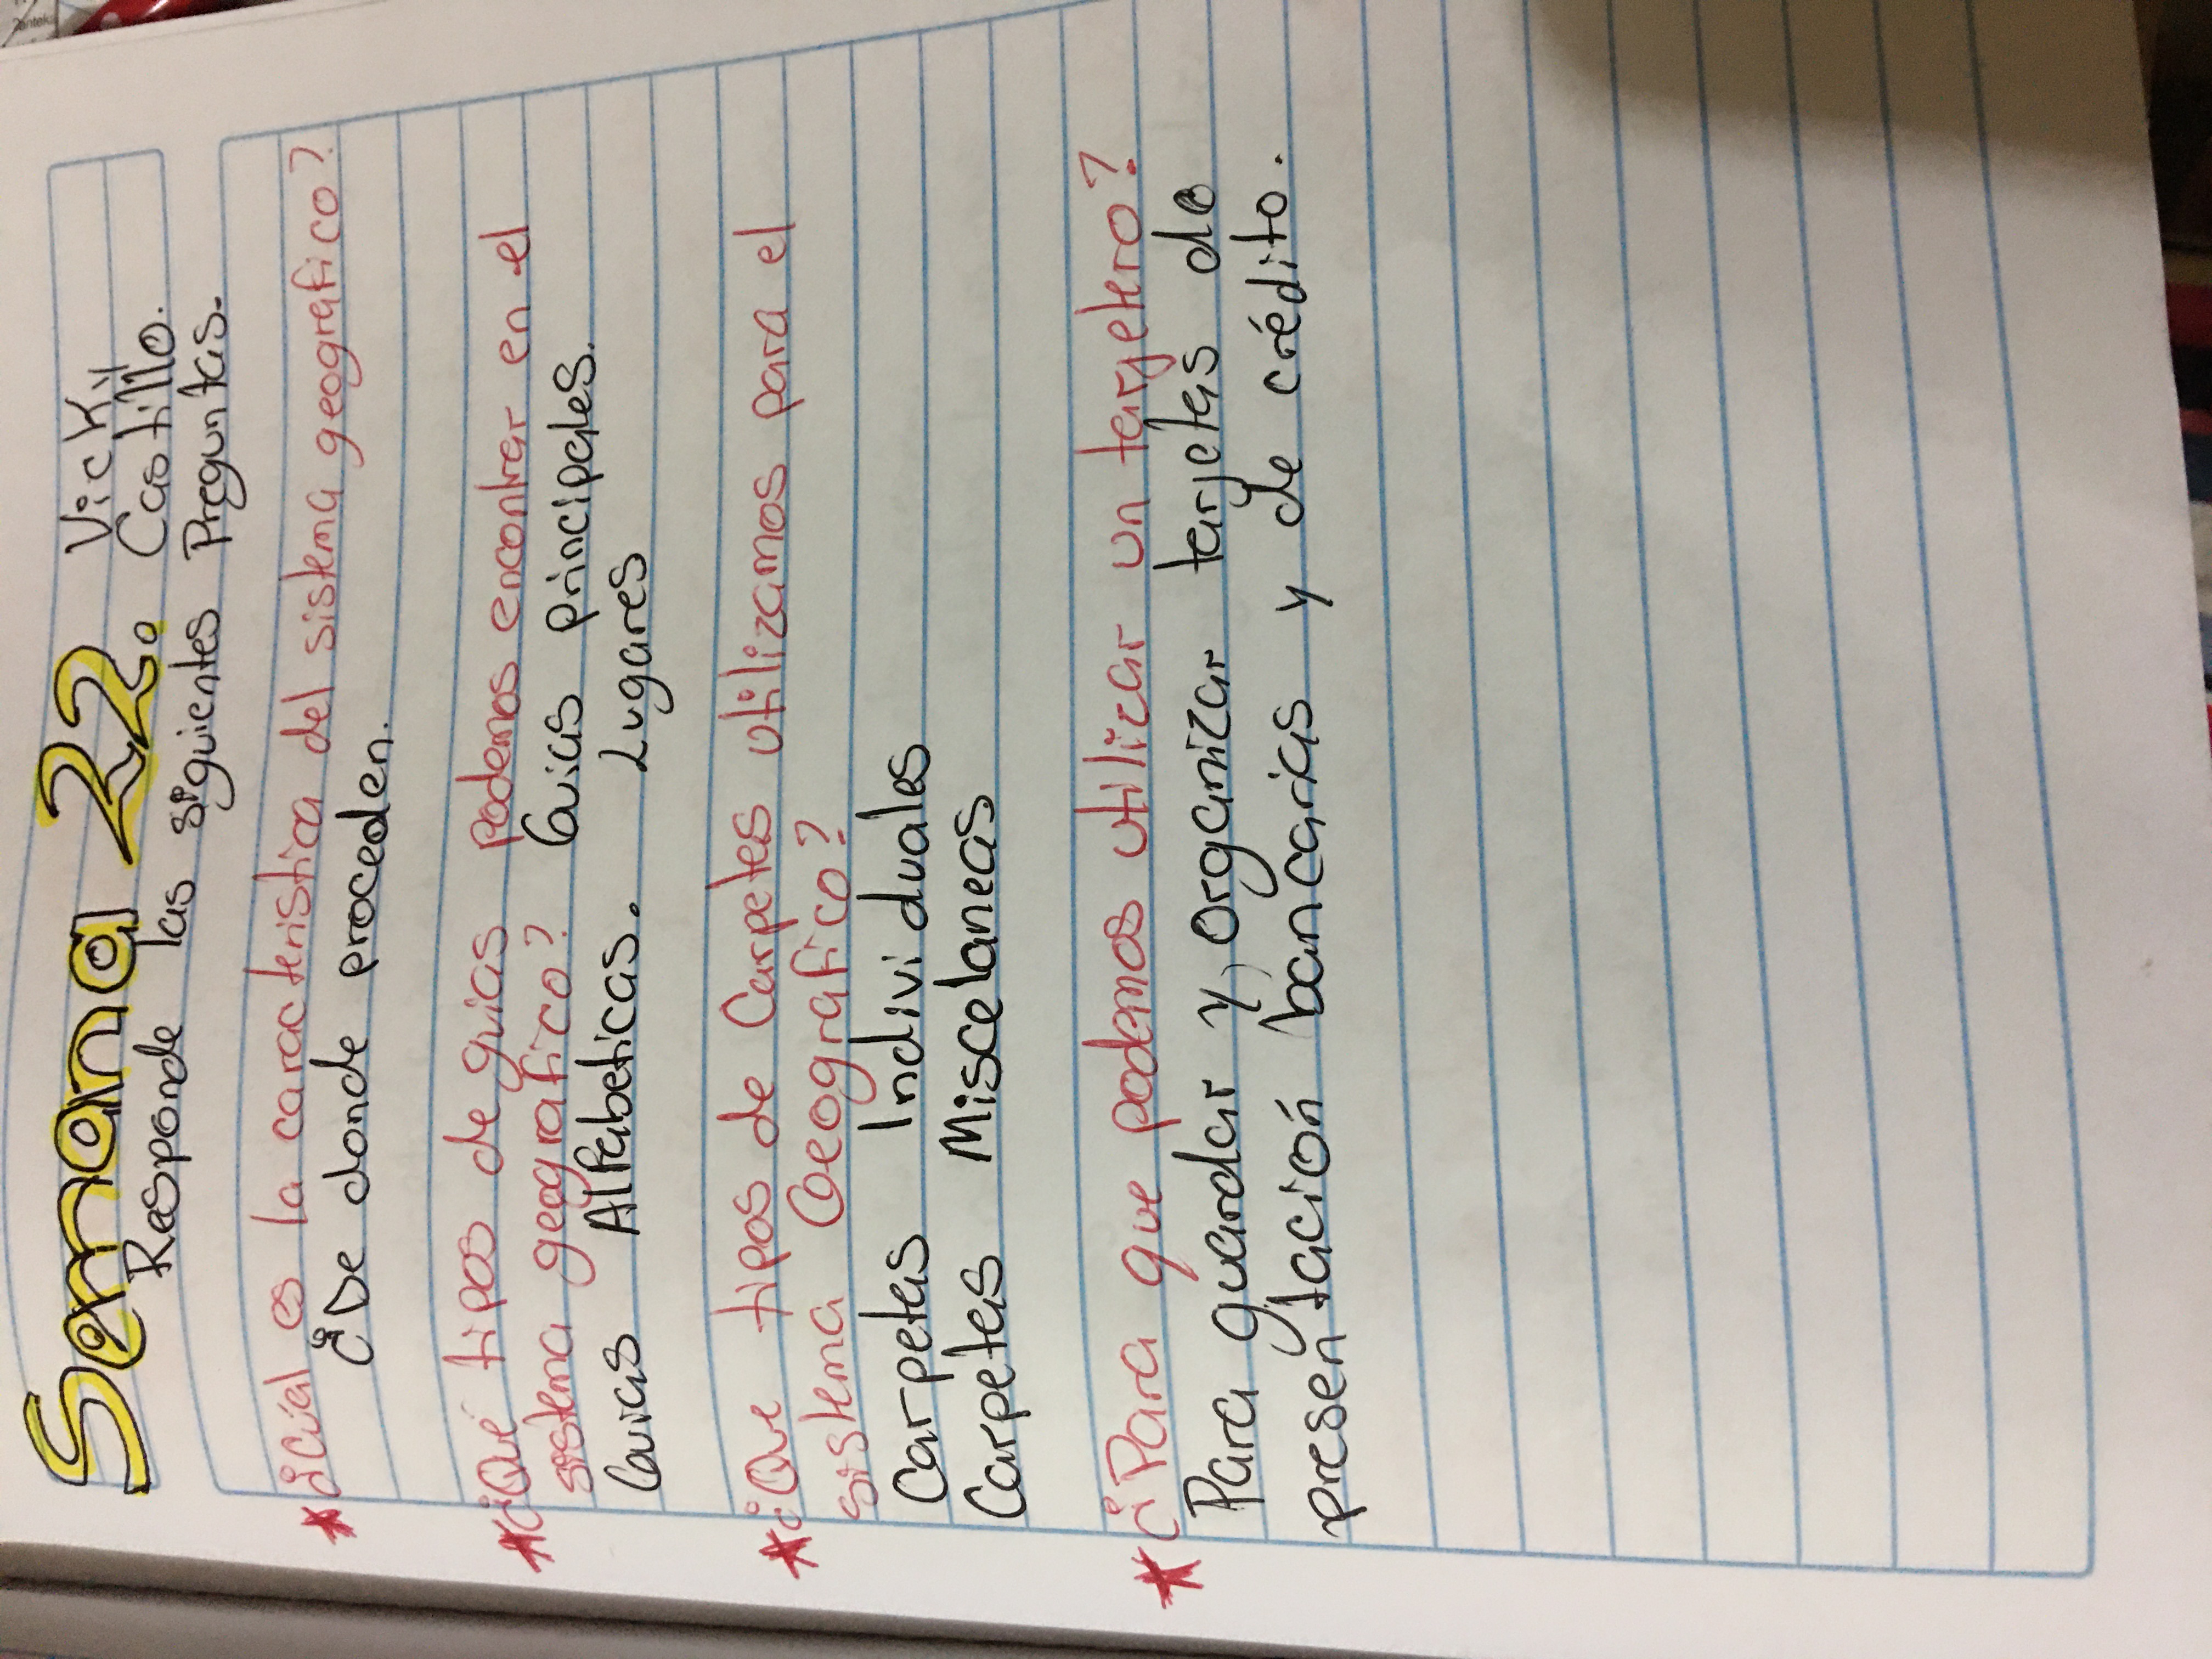 Semana 22. Vicky
Castillo.
Responde las siguientes Preguntas.
* ¿Cuál es la caracteristica del sistema geografico?
¿De donde proceden.
* ¿Qué tipos de guias podemos encontrar en el
sistema geografico? Guias principales.
Guias Alfabeticas. Lugares
* ¿Que tipos de Carpetas utilizamos para el
sistema Geografico?
Carpetas Individuales
Carpetas Miscelaneas
* ¿Para que podemos utilizar un tarjetero?
Para guardar y organizar tarjetas de
presentación bancarias y de crédito.